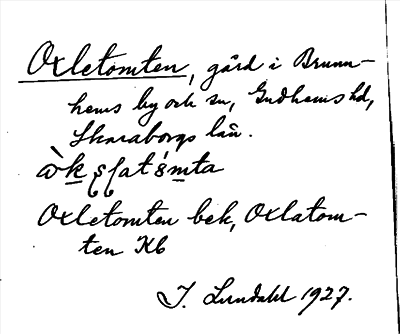 Oxletomten, gård i Brunn-
hems by och sn, Gudhems hd,
Skaraborgs län.
Oxletomten bek, Oxlatom-
ten Kb
I. Lundahl 1927.